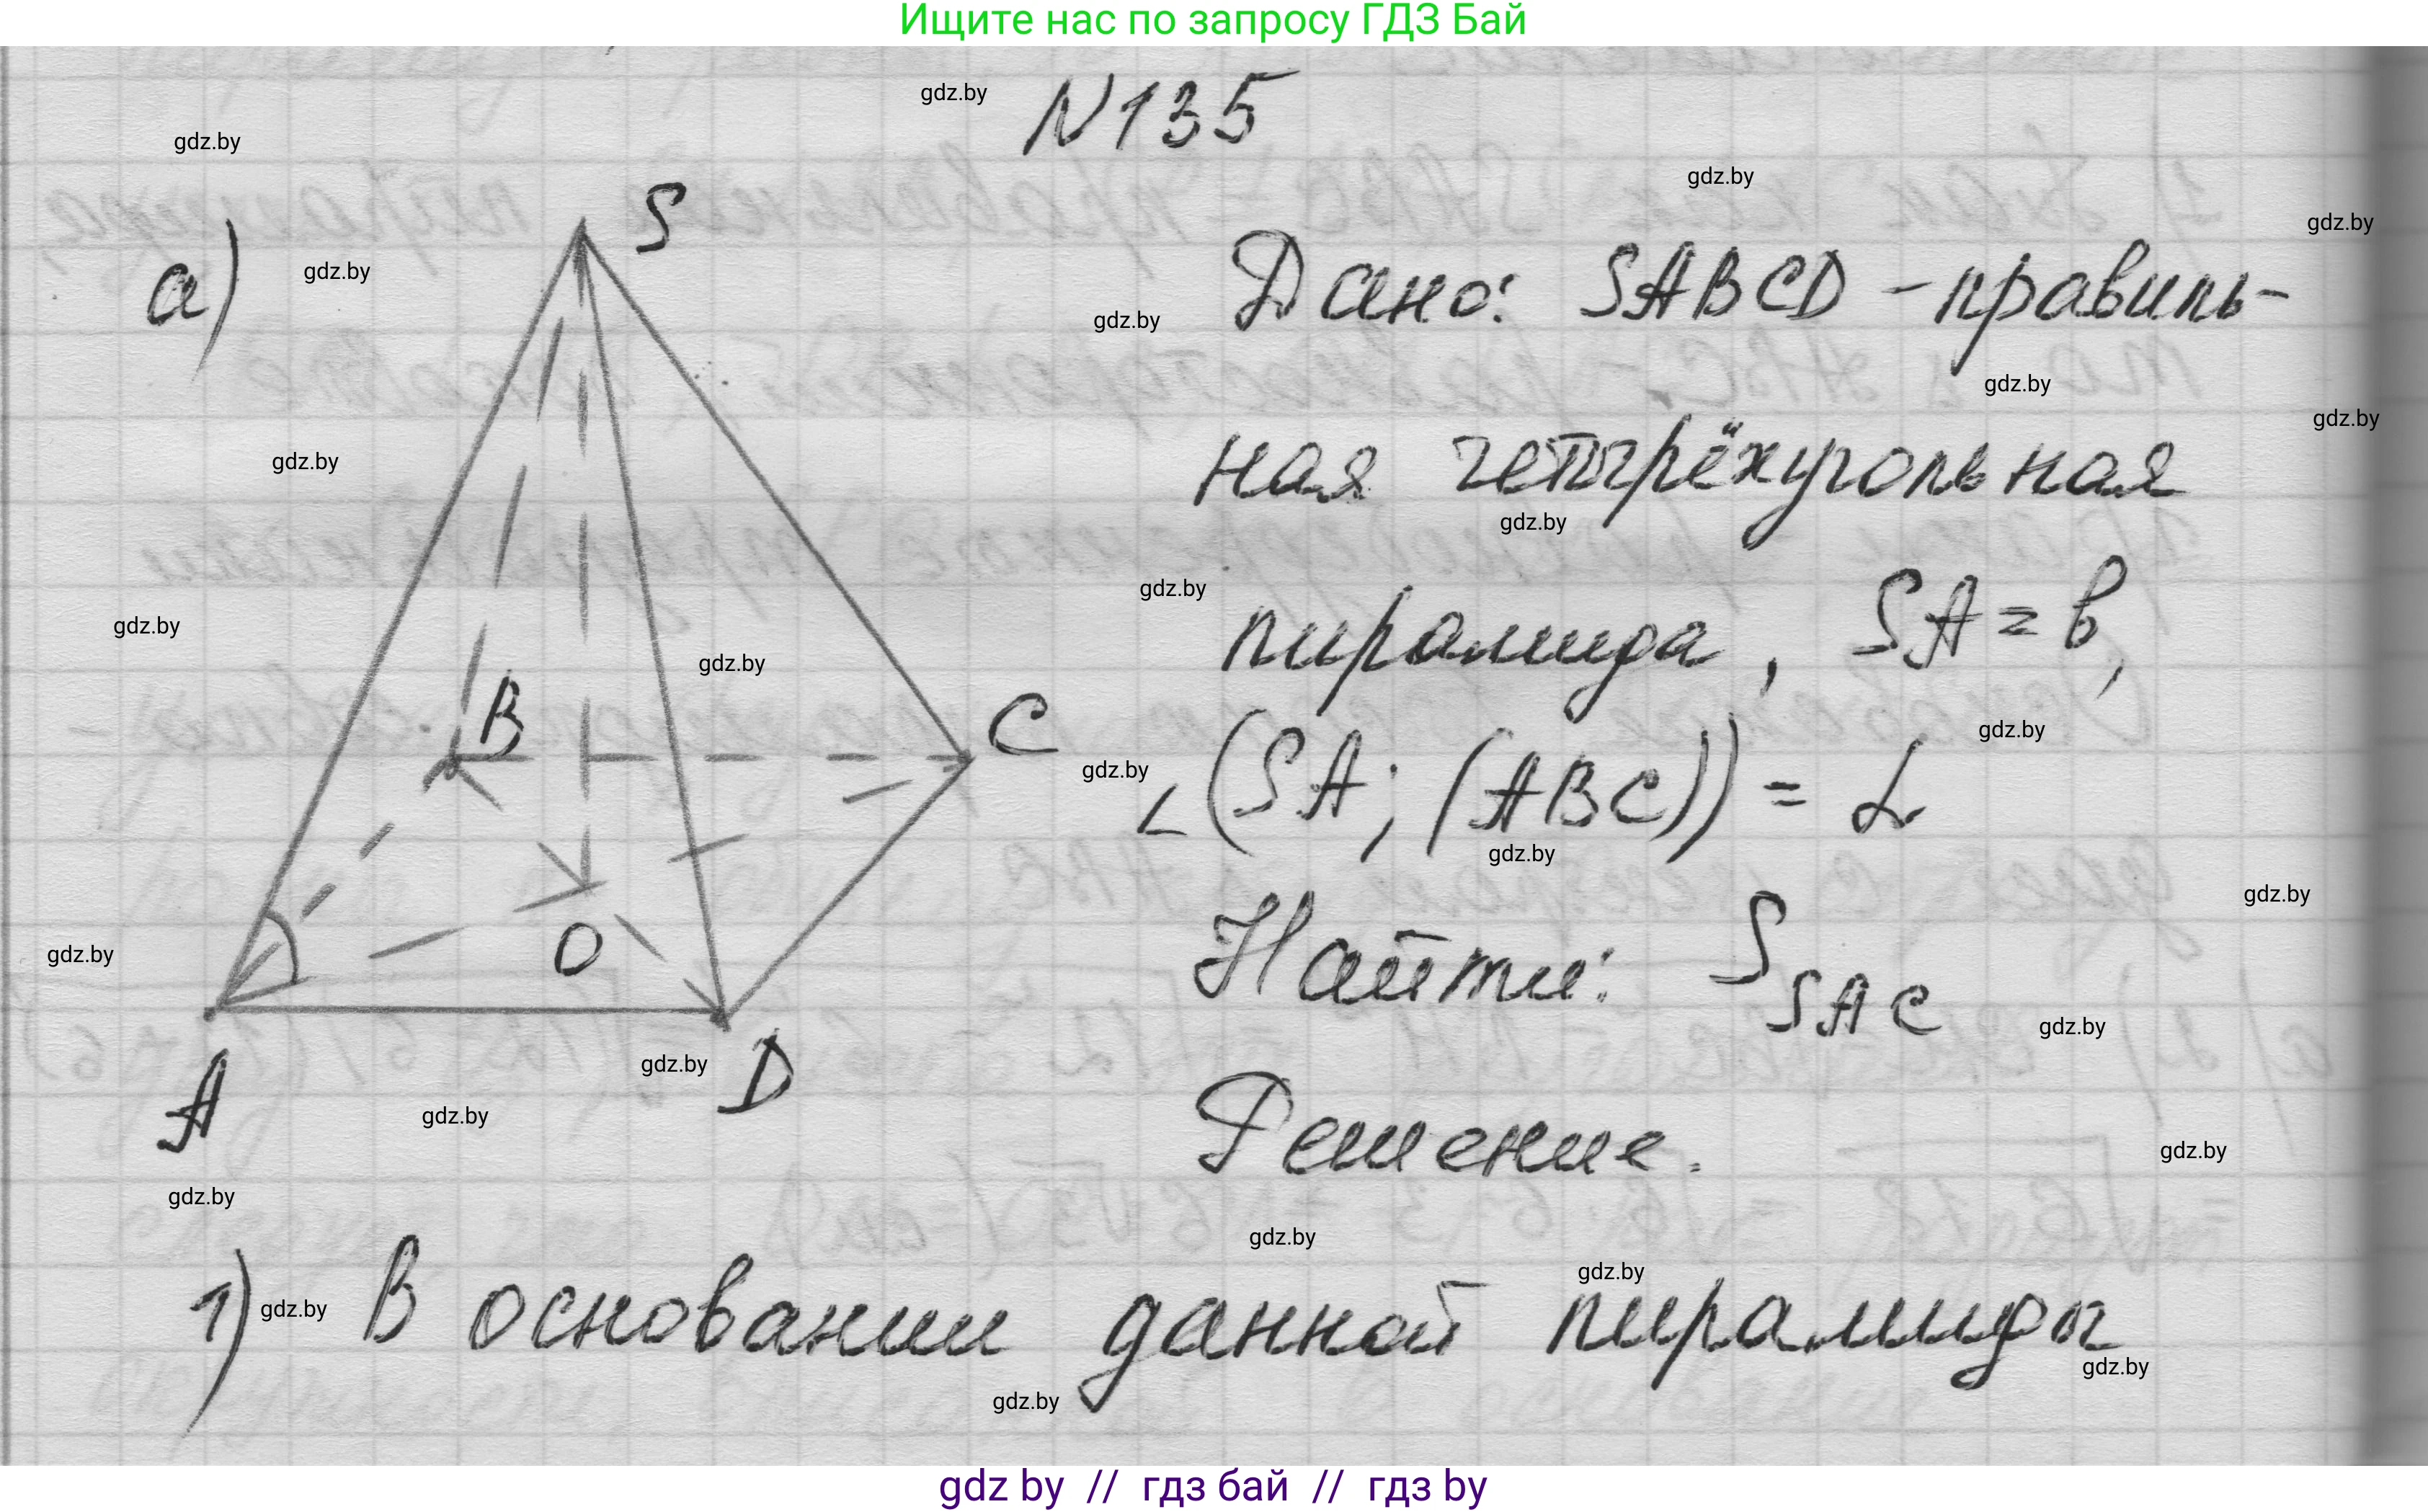 Ищите нас по запросу ГДЗ Бай
N135
gdz.by
gdz.by
gdz.by
S
gdz.by
а)
gdz.by
gdz.by
Дано: SABCD - правиль-
gdz.by
gdz.by
gdz.by
ная четырёхугольная
gdz.by
gdz.by
пирамида, SA = b,
gdz.by
gdz.by
gdz.by
B
C
∠(SA; (ABC)) = α
gdz.by
gdz.by
gdz.by
gdz.by
Найти: S SAC
O
gdz.by
gdz.by
A
D
gdz.by
gdz.by
Решение.
gdz.by
gdz.by
gdz.by
gdz.by
1) В основании данной пирамиды
gdz.by
gdz.by
gdz.by
gdz by // гдз бай // гдз by